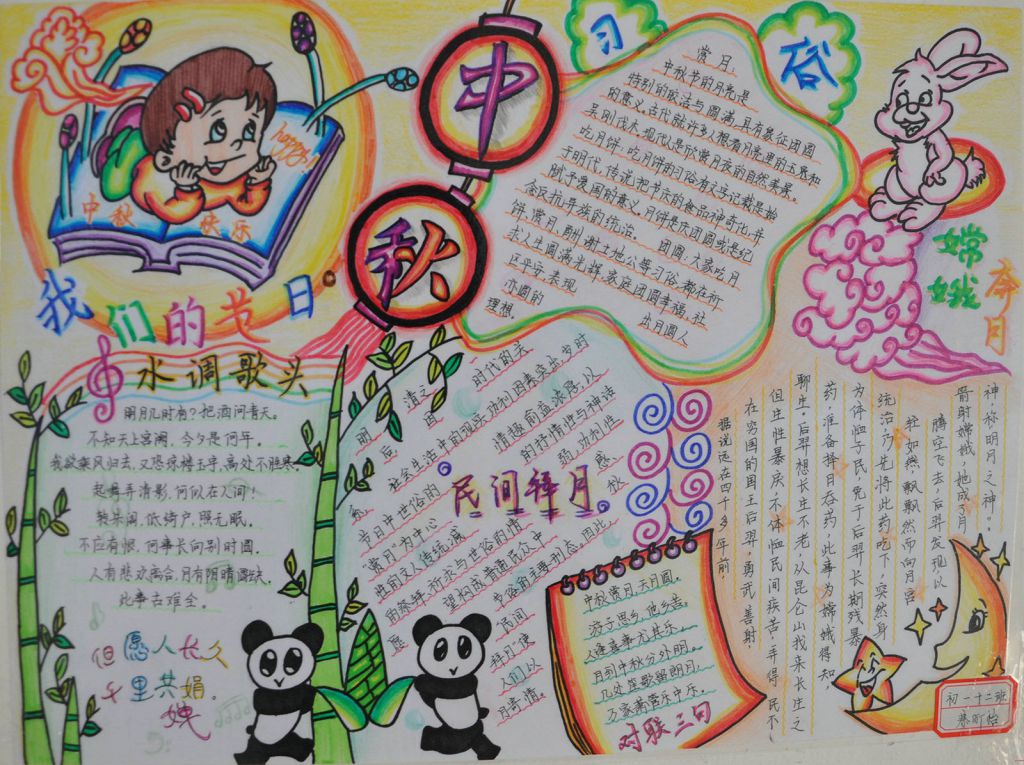 happy!
中秋
快乐
我们的节日
中秋
习俗
赏月
中秋节的月亮是
特别的皎洁与圆满,具有象征团圆
的意义。古代就许多人根看月亮里的玉兔和
吴刚伐木,现代以是欣赏月夜的自然美景。
吃月饼,吃月饼的习俗有文字记载是始
于明代,传说把节庆的食品神奇化,并
赋予爱国的意义。月饼是庆团圆或是纪
念反抗异族的统治。 团圆,大家吃月
饼、赏月、酬谢土地公等习俗,都在祈
求人生圆满光辉,家庭团圆幸福,社
区平安,表现
出月圆人
亦圆的
理想。
嫦娥
奔月
水调歌头
明月几时有?把酒问青天。
不知天上宫阙,今夕是何年。
我欲乘风归去,又恐琼楼玉宇,高处不胜寒。
起舞弄清影,何似在人间!
转朱阁,低绮户,照无眠。
不应有恨,何事长向别时圆。
人有悲欢离合,月有阴晴圆缺,
此事古难全。
但愿人长久
千里共婵娟。
民间拜月。
明清之
时代的关
后,因
社会生活中的现实功利因素突出,岁时
节日中世俗的
情趣愈益浓厚,以
“赏月”为中心
的抒情性与神话
性的文人传统减
弱,功利性
的祭拜、祈求与世俗的情
感、
望构成普通民众中
秋
节俗的主要形态。因此,
民间
拜月”使
人们以
中秋赏月,天月圆。
游子思乡,他乡苦。
人逢喜事尤其乐
月到中秋分外明。
几处笙歌留朗月,
万家箫管乐中秋。
对联三句
据说远在四千多年前,
在穷国的国王后羿,勇武善射
但生性暴戾,不体恤民间疾苦,弄得民不
聊生。后羿想长生不老,从昆仑山找来长生之
药,准备择日吞药,此事为嫦娥得知,
为体恤子民,免于后羿长期残暴
统治,乃先将此药吃下,突然身
轻如燕,飘飘然而向月宫
腾空飞去,后羿发现以
箭射嫦娥,她成了月
神,称明月之神”。
初一十二班